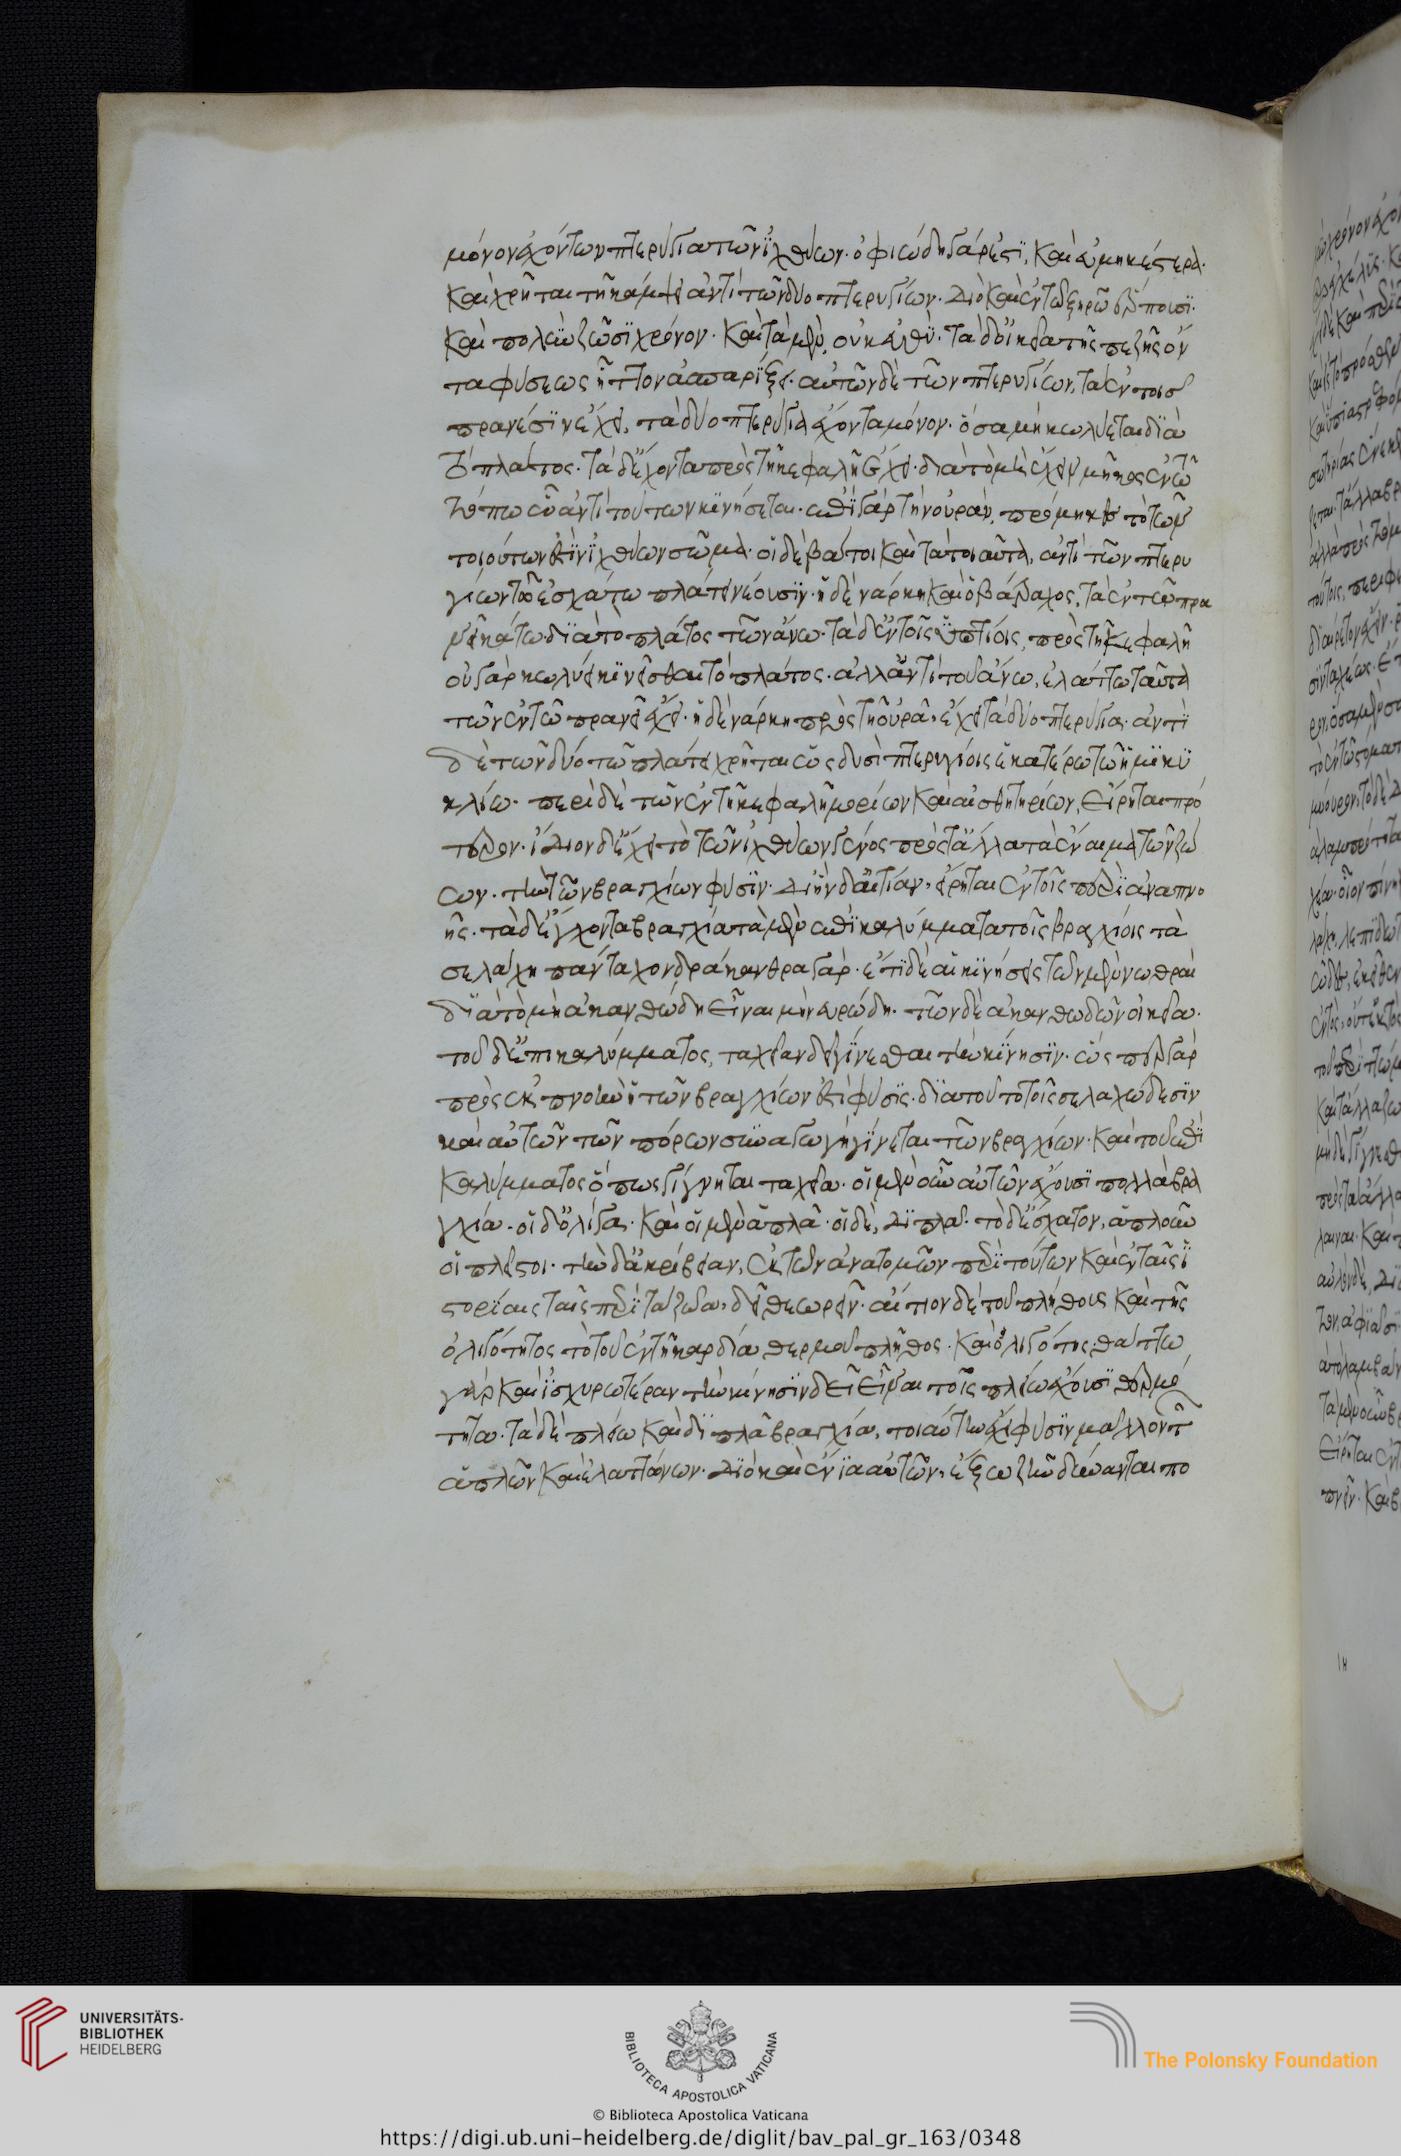 μόνον ἐχόντων πτερύγια τῶν ἰχθύων· ὀφιώδη γάρ ἐστι, καὶ εὐμηκέστερα·
καὶ χρῆται τῆ κάμψει ἀντὶ τῶν δύο πτερυγίων· διὸ καὶ ἐν τῶ ξηρῶ ἕρπουσι·
καὶ πολὺν ζῶσι χρόνον· καὶ τὰ μὲν, οὐκ εὐθὺ· τὰ δ' οἰκεῖα τῆς πεζῆς ὄν
τα φύσεως ἧττον ἀσπαρίζει· αὐτῶν δὲ τῶν πτερυγίων, τὰ ἐν τοῖς
πρανέσιν ἔχει, τὰ δύο πτερύγια ἔχοντα μόνον· ὅσα μὴ κωλύεται διὰ
τὸ πλάτος· τὰ δ' ἔχοντα πρὸς τῆ κεφαλῆ ἔχει· διὰ τὸ μὴ ἔχειν μῆκος ἐν τῶ
τόπω ᾧ ἀντὶ τούτων κινήσεται· ἐπὶ γὰρ τὴν οὐρὰν, πρόμηκες τὸ τῶν
τοιούτων ἐστὶν ἰχθύων σῶμα· οἱ δὲ βάτοι καὶ τὰ τοιαῦτα, ἀντὶ τῶν πτερυ
γίων τῶ ἐσχάτω πλάτει νέουσιν· ἡ δὲ νάρκη καὶ ὁ βάτραχος, τὰ ἐν τῶ πρα
νεῖ κάτω διὰ τὸ πλάτος τῶν ἄνω· τὰ δ' ἐν τοῖς ὑπτίοις, πρὸς τῆ κεφαλῆ
οὐ γὰρ κωλύει κινεῖσθαι τὸ πλάτος· ἀλλ' ἀντὶ τοῦ ἄνω, ἐλάττω ταῦτα
τῶν ἐν τῶ πρανεῖ ἔχει· ἡ δὲ νάρκη πρὸς τῆ οὐρᾶ, ἔχει τὰ δύο πτερύγια· ἀντὶ
δὲ τῶν δύο τῶ πλάτει χρῆται ὡς δυσὶ πτερυγίοις ἑκατέρω τῶ ἡμικυ
κλίω· περὶ δὲ τῶν ἐν τῆ κεφαλῆ μορίων καὶ αἰσθητηρίων, εἴρηται πρό
τερον· ἴδιον δ' ἔχει τὸ τῶν ἰχθύων γένος πρὸς τἄλλα τὰ ἔναιμα τῶν ζώ
ων· τὴν τῶν βραγχίων φύσιν· δι' ἣν δ' αἰτίαν, εἴρηται ἐν τοῖς περὶ ἀναπνο
ῆς· τὰ δ' ἔχοντα βράγχια τὰ μὲν ἐπικαλύμματα τοῖς βραγχίοις τὰ
σελάχη πάντα χονδράκανθα γάρ· ἔτι δὲ αἱ κινήσεις τῶν μὲν νωθραὶ
διὰ τὸ μὴ ἀκανθώδη εἶναι μὴ νευρώδη· τῶν δὲ ἀκανθωδῶν οἰκεῖα·
τοῦ δ' ἐπικαλύμματος, ταχεῖαν δεῖ γίνεσθαι τὴν κίνησιν· ὡς περ γὰρ
πρὸς ἐκπνοὴν ἡ τῶν βραγχίων ἐστὶ φύσις· διὰ τοῦτο τοῖς σελαχώδεσιν
καὶ αὐτῶν τῶν πόρων συναγωγὴ γίνεται τῶν βραγχίων· καὶ τοῦ ἐπι
καλύμματος ὅπως γίγνηται ταχεῖα· οἱ μὲν οὖν αὐτῶν ἔχουσι πολλὰ βρά
γχια· οἱ δ' ὀλίγα· καὶ οἱ μὲν ἁπλᾶ· οἱ δὲ, διπλᾶ· τὸ δ' ἔσχατον, ἁπλοῦν
οἱ πλεῖστοι· τὴν δ' ἀκρίβειαν, ἐκ τῶν ἀνατομῶν περὶ τούτων καὶ ἐν ταῖς ἱ
στορίαις ταῖς περὶ τὰ ζῶα, δεῖ θεωρεῖν· αἴτιον δὲ τοῦ πλήθους καὶ τῆς
ὀλιγότητος τὸ τοῦ ἐν τῆ καρδία θερμοῦ πλῆθος· καὶ ὀλιγότης· θάττω
γὰρ καὶ ἰσχυροτέραν τὴν κίνησιν δεῖ εἶναι τοῖς πλείω ἔχουσι θερμό
τητα· τὰ δὲ πλείω καὶ διπλᾶ βράγχια, τοιαύτην ἔχει φύσιν μᾶλλον τῶν
ἁπλῶν καὶ ἐλαττόνων· διὸ καὶ ἔνια αὐτῶν, ἔξω ζῆν δύνανται πο
UNIVERSITÄTS-
BIBLIOTHEK
HEIDELBERG
BIBLIOTECA APOSTOLICA VATICANA
The Polonsky Foundation
© Biblioteca Apostolica Vaticana
https://digi.ub.uni-heidelberg.de/diglit/bav_pal_gr_163/0348